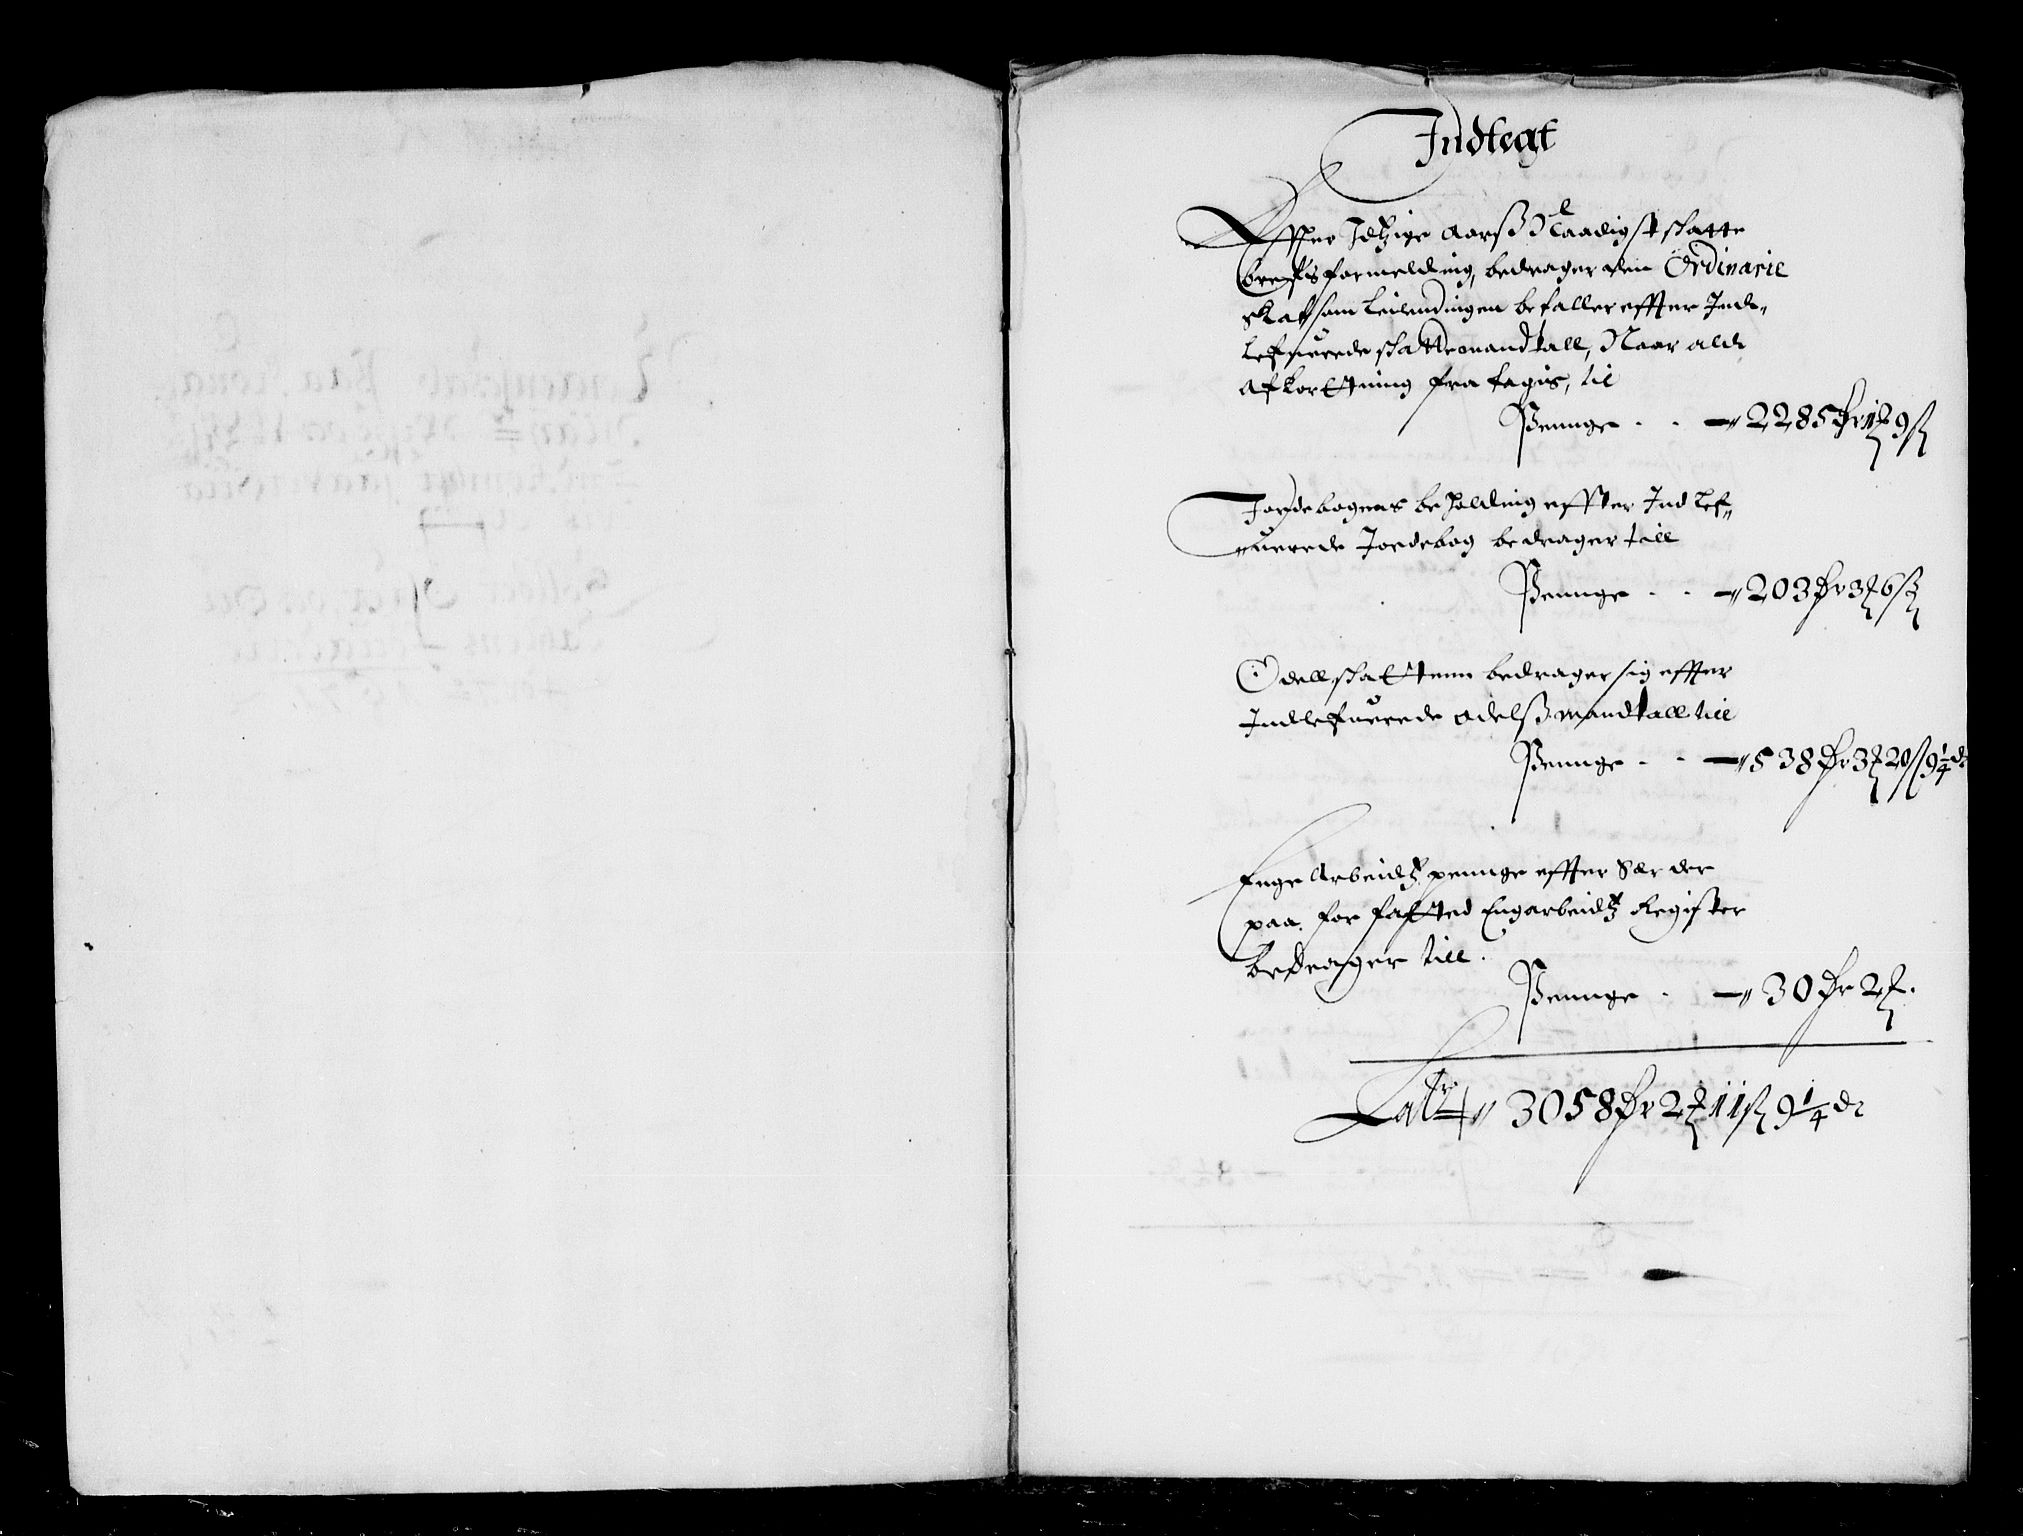 Indtegt
Effter Idtzige Aarß Naadigst skatte
brefs formelding, bedrager den Ordinarie
Skat som Leilendingen befaller effter Ind-
lefuerede skattemandtall, Naar all
afkortning fra tagis, til
Pennge - - 2285 Dr 1 9 ß
Jordebogens beholding effter Ind lef-
uerede Jordebog bedrager till
Penninge - - 203 Dr 3 6 ß
Odellskattenn bedrager sig effter
Indlefuerede odelß mandtall till
Penninge - - 538 Dr 3 20 ß 9 1/4 d
Enge Arbeidtz penninge effter der
paa forfatted Engarbeidtz Register
bedrager till
Penninge - 30 Dr 2
Lattr 3058 Dr 2 11 ß 9 1/4 d